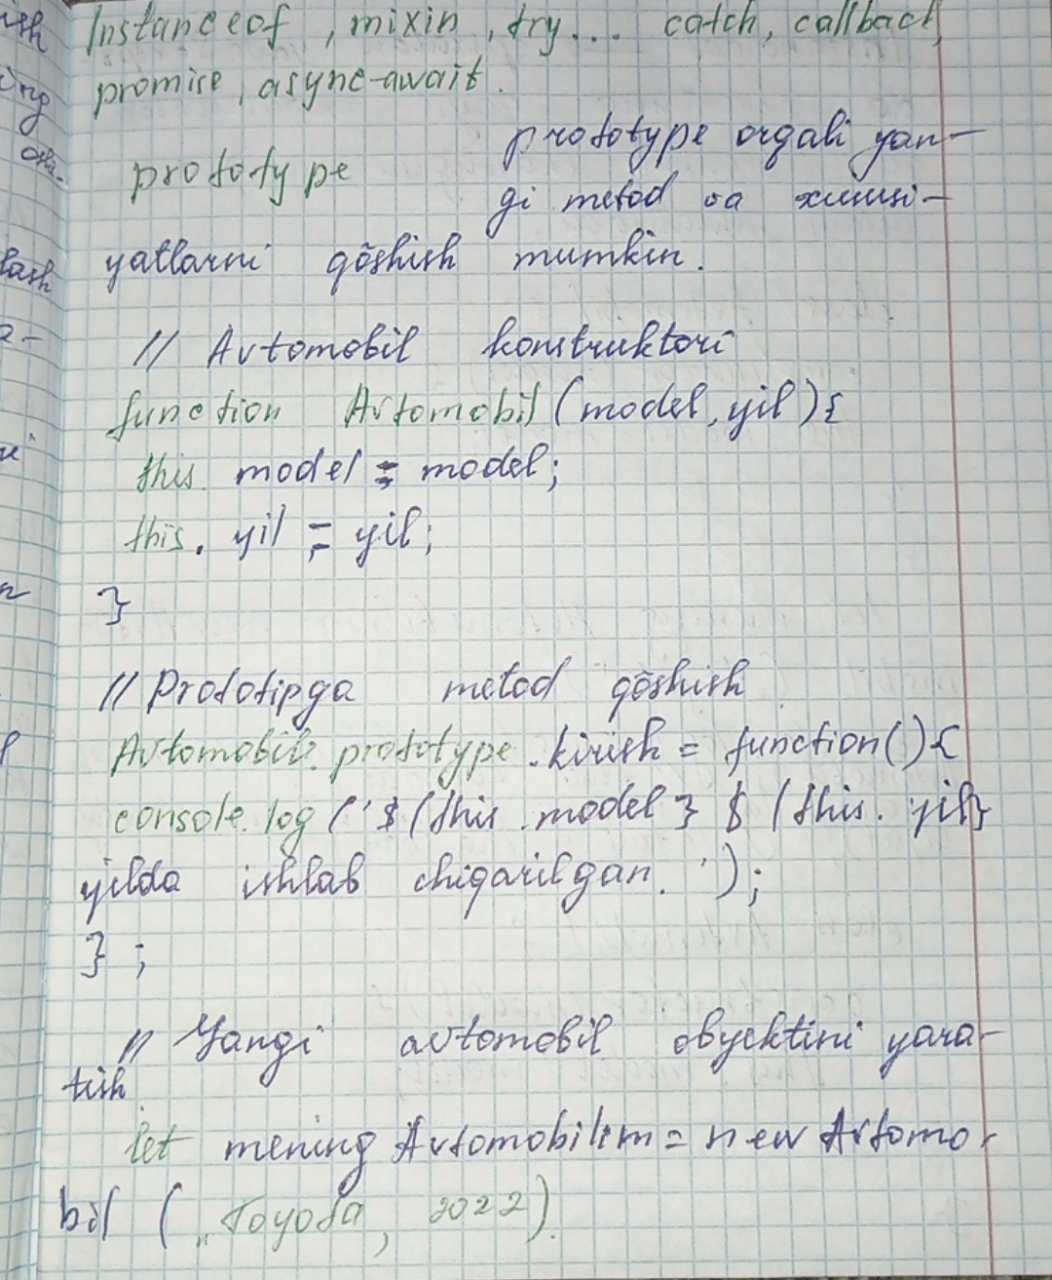 Instanceof, mixin, try... catch, callback,
promise, async-await.
prototype prototype orqali yan-
gi metod va xususi-
yatlarni qōshish mumkin.
// Avtomobil konstruktori
function Avtomobil (model, yil) {
this. model = model;
this. yil = yil;
}
// Prototipga metod qōshish
Avtomobil. prototype. kirish = function() {
console. log ('$ (this. model } $ (this. yil}
yilda ishlab chiqarilgan. ');
} ;
// Yangi avtomobil obyektini yara-
tish
let mening Avtomobilim = new Avtomo-
bil ( „Toyota, 2022)